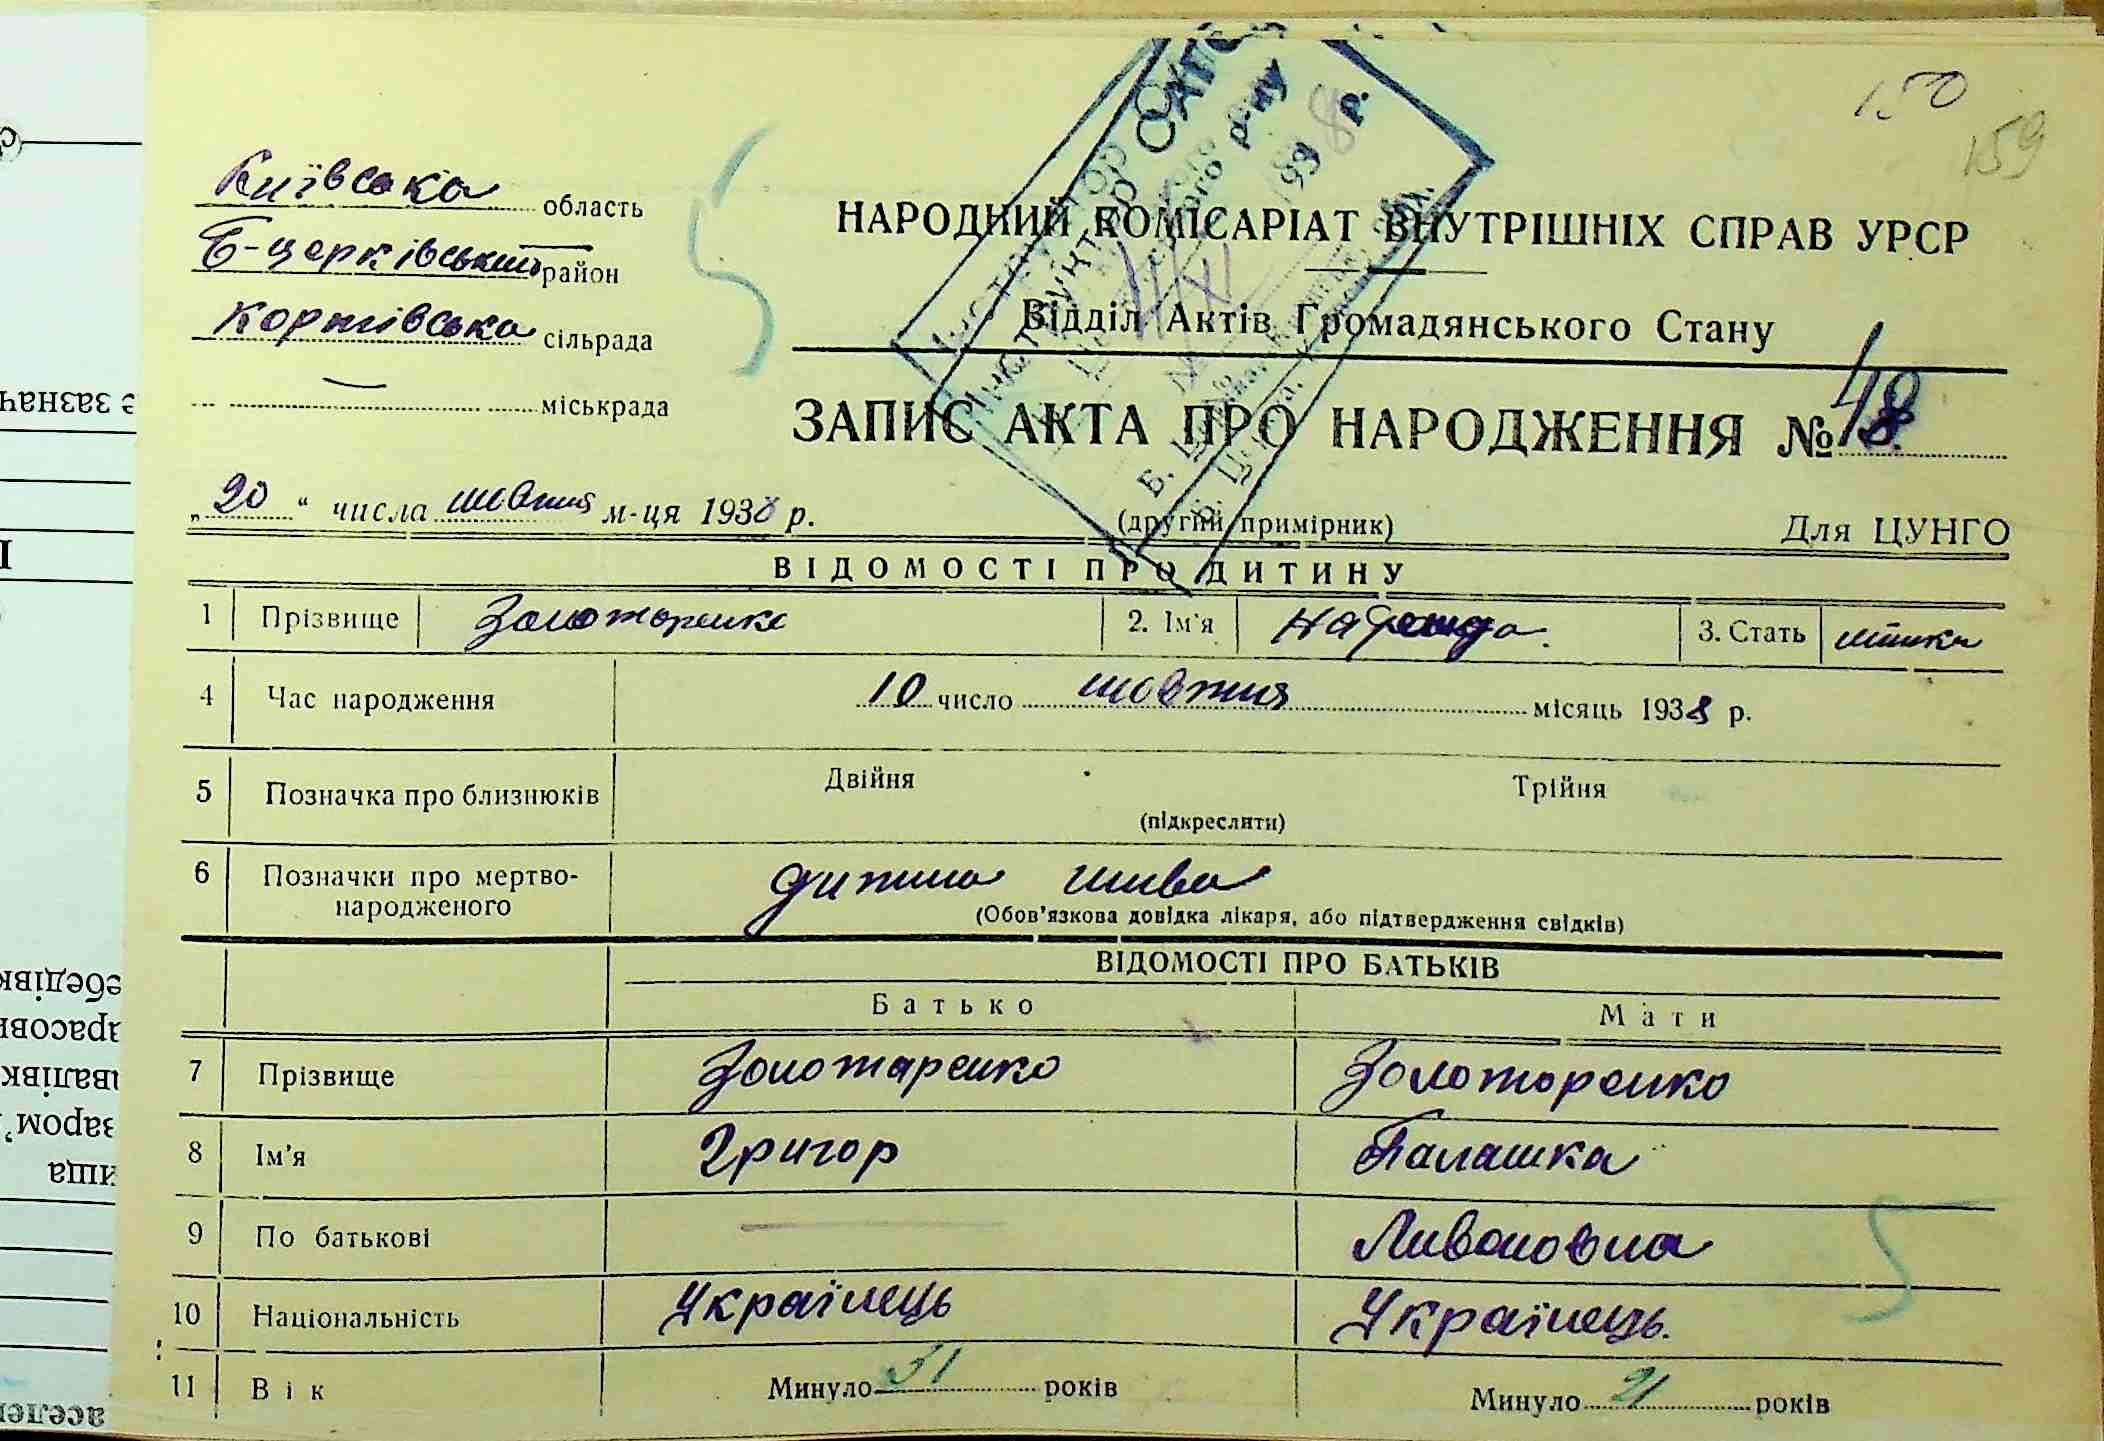 150
159
Київська область
Б-церківський район
сільрада
міськрада
НАРОДНИЙ КОМІСАРІАТ ВНУТРІШНІХ СПРАВ УРСР
Відділ Актів Громадянського Стану
ЗАПИС АКТА ПРО НАРОДЖЕННЯ № 48
„20“ числа жовтня м-ця 1938 р.
(другий примірник) Для ЦУНГО
ВІДОМОСТІ ПРО ДИТИНУ
1 Прізвище Золотаренко 2. Ім'я 3. Стать жінка
4 Час народження 10 число жовтня місяць 1938 р.
5 Позначка про близнюків Двійня Трійня
(підкреслити)
6 Позначки про мертво-
народженого дитина жива
(Обов'язкова довідка лікаря, або підтвердження свідків)
ВІДОМОСТІ ПРО БАТЬКІВ
Батько Мати
7 Прізвище Золотаренко Золоторенко
8 Ім'я Григор Палашка
9 По батькові — Ливоновна
10 Національність Українець Українець.
11 Вік Минуло 31 років Минуло 21 років